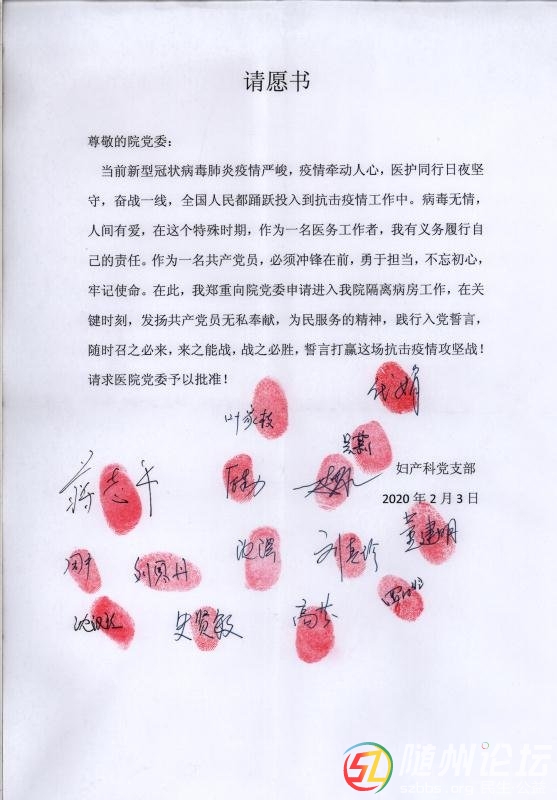 请愿书
尊敬的院党委：
当前新型冠状病毒肺炎疫情严峻，疫情牵动人心，医护同行日夜坚
守，奋战一线，全国人民都踊跃投入到抗击疫情工作中。病毒无情，
人间有爱，在这个特殊时期，作为一名医务工作者，我有义务履行自
己的责任。作为一名共产党员，必须冲锋在前，勇于担当，不忘初心，
牢记使命。在此，我郑重向院党委申请进入我院隔离病房工作，在关
键时刻，发扬共产党员无私奉献，为民服务的精神，践行入党誓言，
随时召之必来，来之能战，战之必胜，誓言打赢这场抗击疫情攻坚战！
请求医院党委予以批准！
妇产科党支部
2020 年 2 月 3 日
董建明
史贤敏
随州论坛